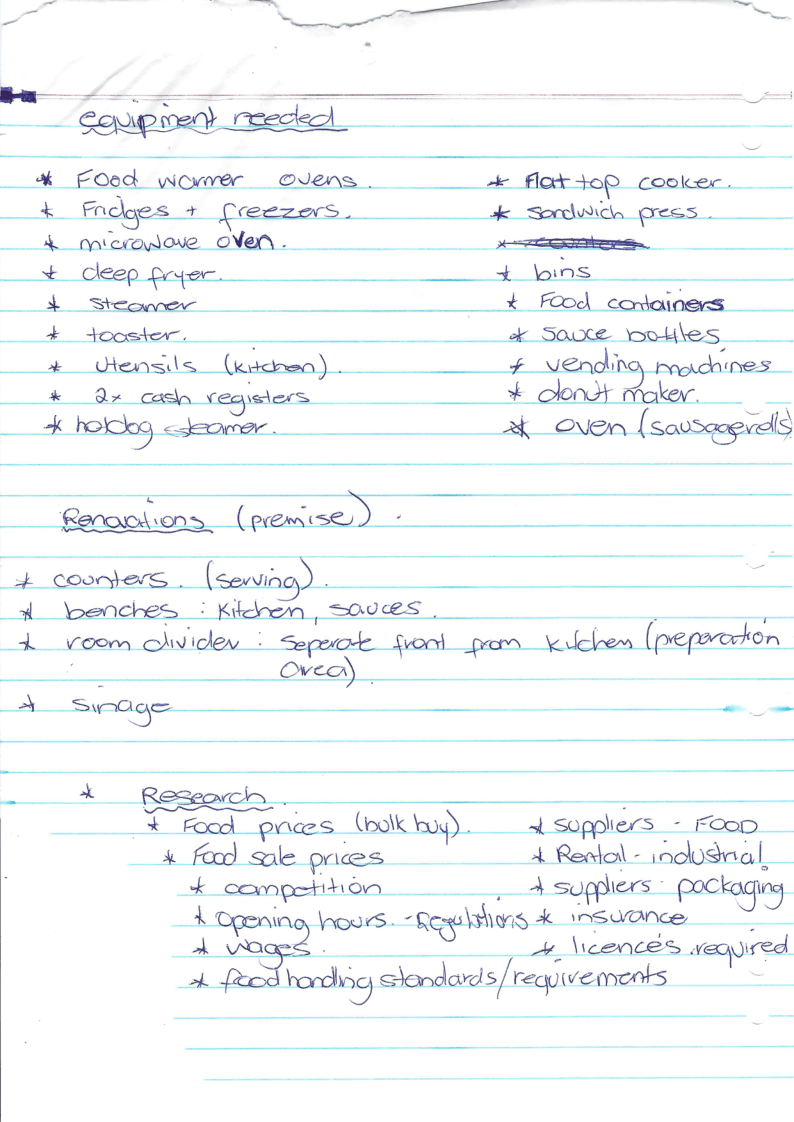 equipment needed
* Food warmer ovens.
* Fridges + freezers.
* microwave oven.
* deep fryer.
* steamer
* toaster.
* utensils (kitchen).
* 2x cash registers
* hotdog steamer.
* flat top cooker.
* sandwich press.
* counters
* bins
* Food containers
* sauce bottles
* vending machines
* donut maker.
* oven (sausagerolls)
Renovations (premise).
* counters. (serving).
* benches : kitchen, sauces.
* room divider : seperate front from kitchen (preparation
area)
* sinage
* Research.
* Food prices (bulk buy).
* Food sale prices
* competition
* opening hours. - Regulations
* wages.
* food handling standards/requirements
* suppliers - FOOD
* Rental - industrial
* suppliers - packaging
* insurance
* licence's required